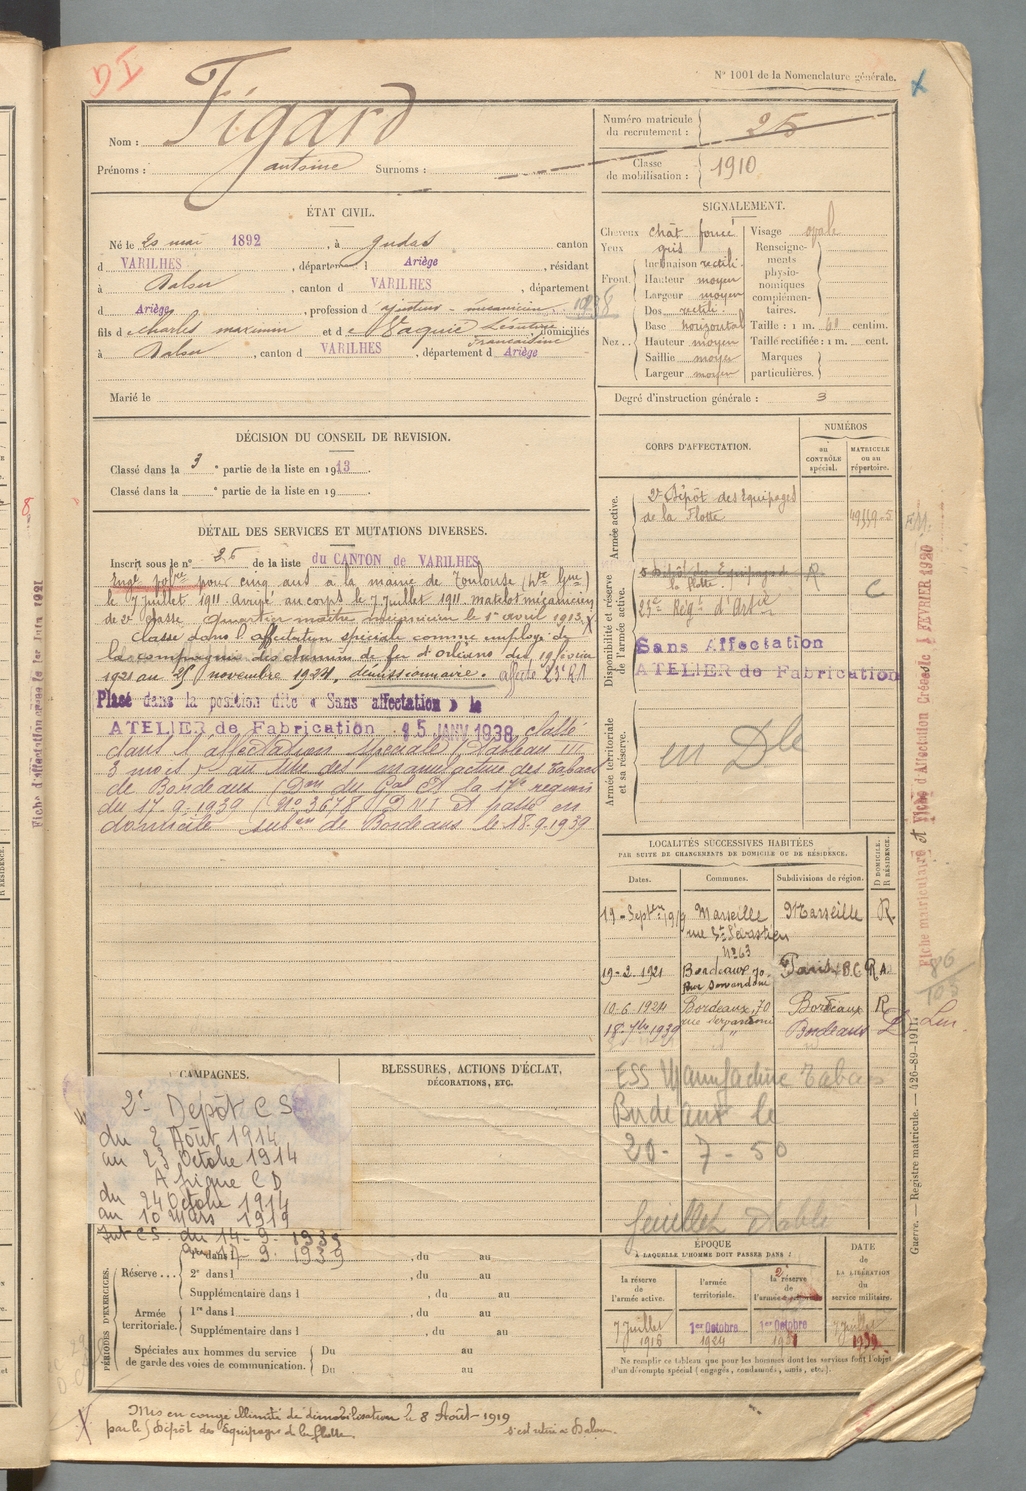 DI
N° 1001 de la Nomenclature générale.
Nom : Figard
Prénoms : antoine Surnoms :
Numéro matricule du recrutement : 25
Classe de mobilisation : 1910
ÉTAT CIVIL.
Né le 20 mai 1892, à Gudas canton
d VARILHES, département d Ariège, résidant
à Dalou, canton d VARILHES, département
d Ariège, profession d'ajusteur - mécanicien
fils de Charles maximin et de Vaquié Françoise domiciliés
à Dalou, canton d VARILHES, département d Ariège
Marié le
SIGNALEMENT.
Cheveux chât foncé
Yeux gris
Front
Inclinaison rectili.
Hauteur moyen
Largeur moyen
Nez
Dos rectili.
Base horizontal
Hauteur moyen
Saillie moyen
Largeur moyen
Visage ovale
Renseignements physionomiques complémentaires.
Taille : 1 m. centim.
Taille rectifiée : 1 m. cent.
Marques particulières.
Degré d'instruction générale : 3
DÉCISION DU CONSEIL DE REVISION.
Classé dans la 3e partie de la liste en 1913.
Classé dans la e partie de la liste en 19
CORPS D'AFFECTATION.
NUMÉROS
au CONTRÔLE spécial.
MATRICULE ou au répertoire.
Armée active.
2e Dépôt des Equipages
de la Flotte
49339-5
Disponibilité et réserve de l'armée active.
5 Dépôt des Equipages de
la flotte. R
23e Régt d'Artie C
Sans Affectation
ATELIER de Fabrication
Armée territoriale et sa réserve.
en Dle
DÉTAIL DES SERVICES ET MUTATIONS DIVERSES.
Inscrit sous le n° 25 de la liste du CANTON de VARILHES
Engé pour cinq ans à la mairie de Toulouse (Hte Gne)
le 7 Juillet 1911. Arrivé au corps le 7 Juillet 1911. matelot mécanicien
de 2e classe. Quartier maître mécanicien le 1er avril 1913. X
Classé dans l'affectation spéciale comme employé de
la compagnie des chemins de fer d'orléans du 19 février
1921 au 25 novembre 1924, démissionnaire. affecté 23e RA
Placé dans la position dite « Sans affectation » le
ATELIER de Fabrication 15 JANV 1938 classé
dans l'affectation spéciale (Tableau III
3 mois) au titre des manufacture des tabacs
de Bordeaux (Don du Gal Ct la 17e région
du 17.9.1939 (N° 3678 DMI et passé en
domicile subon de Bordeaux le 18.9.1939
LOCALITÉS SUCCESSIVES HABITÉES
PAR SUITE DE CHANGEMENTS DE DOMICILE OU DE RÉSIDENCE.
Dates. Communes. Subdivisions de région. D DOMICILE. R RÉSIDENCE.
19 Septbre 1919 Marseille Marseille R
rue St Sébastien
N° 63
19-2.1921 Bordeaux 70 Paris B.C R A.
Rue Servandoni
10-6.1924 Bordeaux, 70 Bordeaux R
rue Servandoni
18-7bre 1939 " Bordeaux D
ESS Manufacture Tabacs
Bordeaux le
20-7-50
feuillet Dable
CAMPAGNES.
2e Dépôt CS
du 2 Août 1914
au 23 Octobre 1914
Afrique CD
du 24 Octobre 1914
au 10 Mars 1919
Int CS. du 14-9-1939
9. 1939
BLESSURES, ACTIONS D'ÉCLAT,
DÉCORATIONS, ETC.
PÉRIODES D'EXERCICES.
Réserve...
1re dans l , du au
2e dans l , du au
Supplémentaire dans l , du au
Armée territoriale.
1re dans l , du au
Supplémentaire dans l , du au
Spéciales aux hommes du service de garde des voies de communication.
Du au
Du au
ÉPOQUE
À LAQUELLE L'HOMME DOIT PASSER DANS :
la réserve de l'armée active. l'armée territoriale. la 2e réserve de l'armée
DATE de LA LIBÉRATION du service militaire.
7 Juillet 1916 1er Octobre 1924 1er Octobre 7 Juillet
Ne remplir ce tableau que pour les hommes dont les services font l'objet
d'un décompte spécial (engagés, condamnés, omis, etc.).
Mis en congé illimité de démobilisation le 8 Août-1919
par le 5 Dépôt des Equipages de la flotte. s'est retiré à Dalou.
Fiche matriculaire et Fiche d'Affectation Créées le 1 FÉVRIER 1920
86
103
Guerre. — Registre matricule. — 426-89-1911.
Fiche d'affectation créée le 1er Juin 1921
8